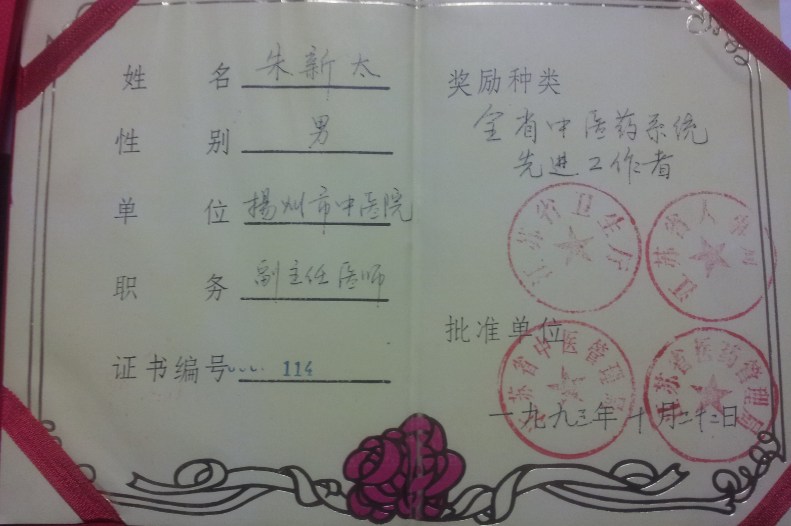 姓 名 朱新太
性 别 男
单 位 揚州市中医院
职 务 副主任医师
证书编号 114
奖励种类
全省中医药系统
先进工作者
江苏省卫生厅
江苏省人事局
批准单位
江苏省中医管理局
江苏省医药管理局
一九九三年十月二十二日